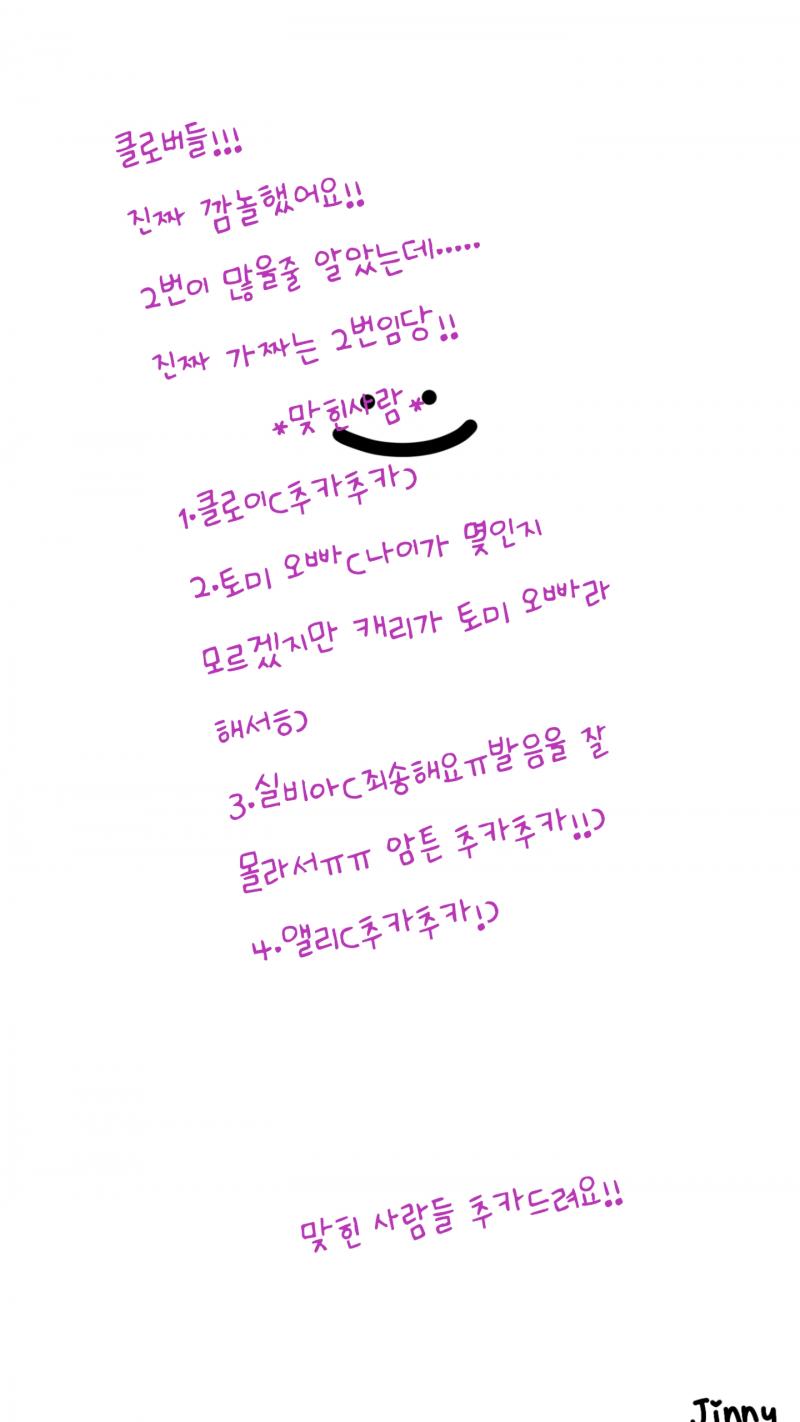 클로버들!!!
진짜 깜놀했어요!!
2번이 많을줄 알았는데.....
진짜 가짜는 2번임당!!
*맞힌사람*
1.클로이(추카추카)
2.토미 오빠(나이가 몇인지
모르겠지만 캐리가 토미 오빠라
해서ㅎ)
3.실비아(죄송해요ㅠ발음을 잘
몰라서ㅠㅠ 암튼 추카추카!!)
4.앨리(추카추카!)
맞힌 사람들 추카드려요!!
Jinny